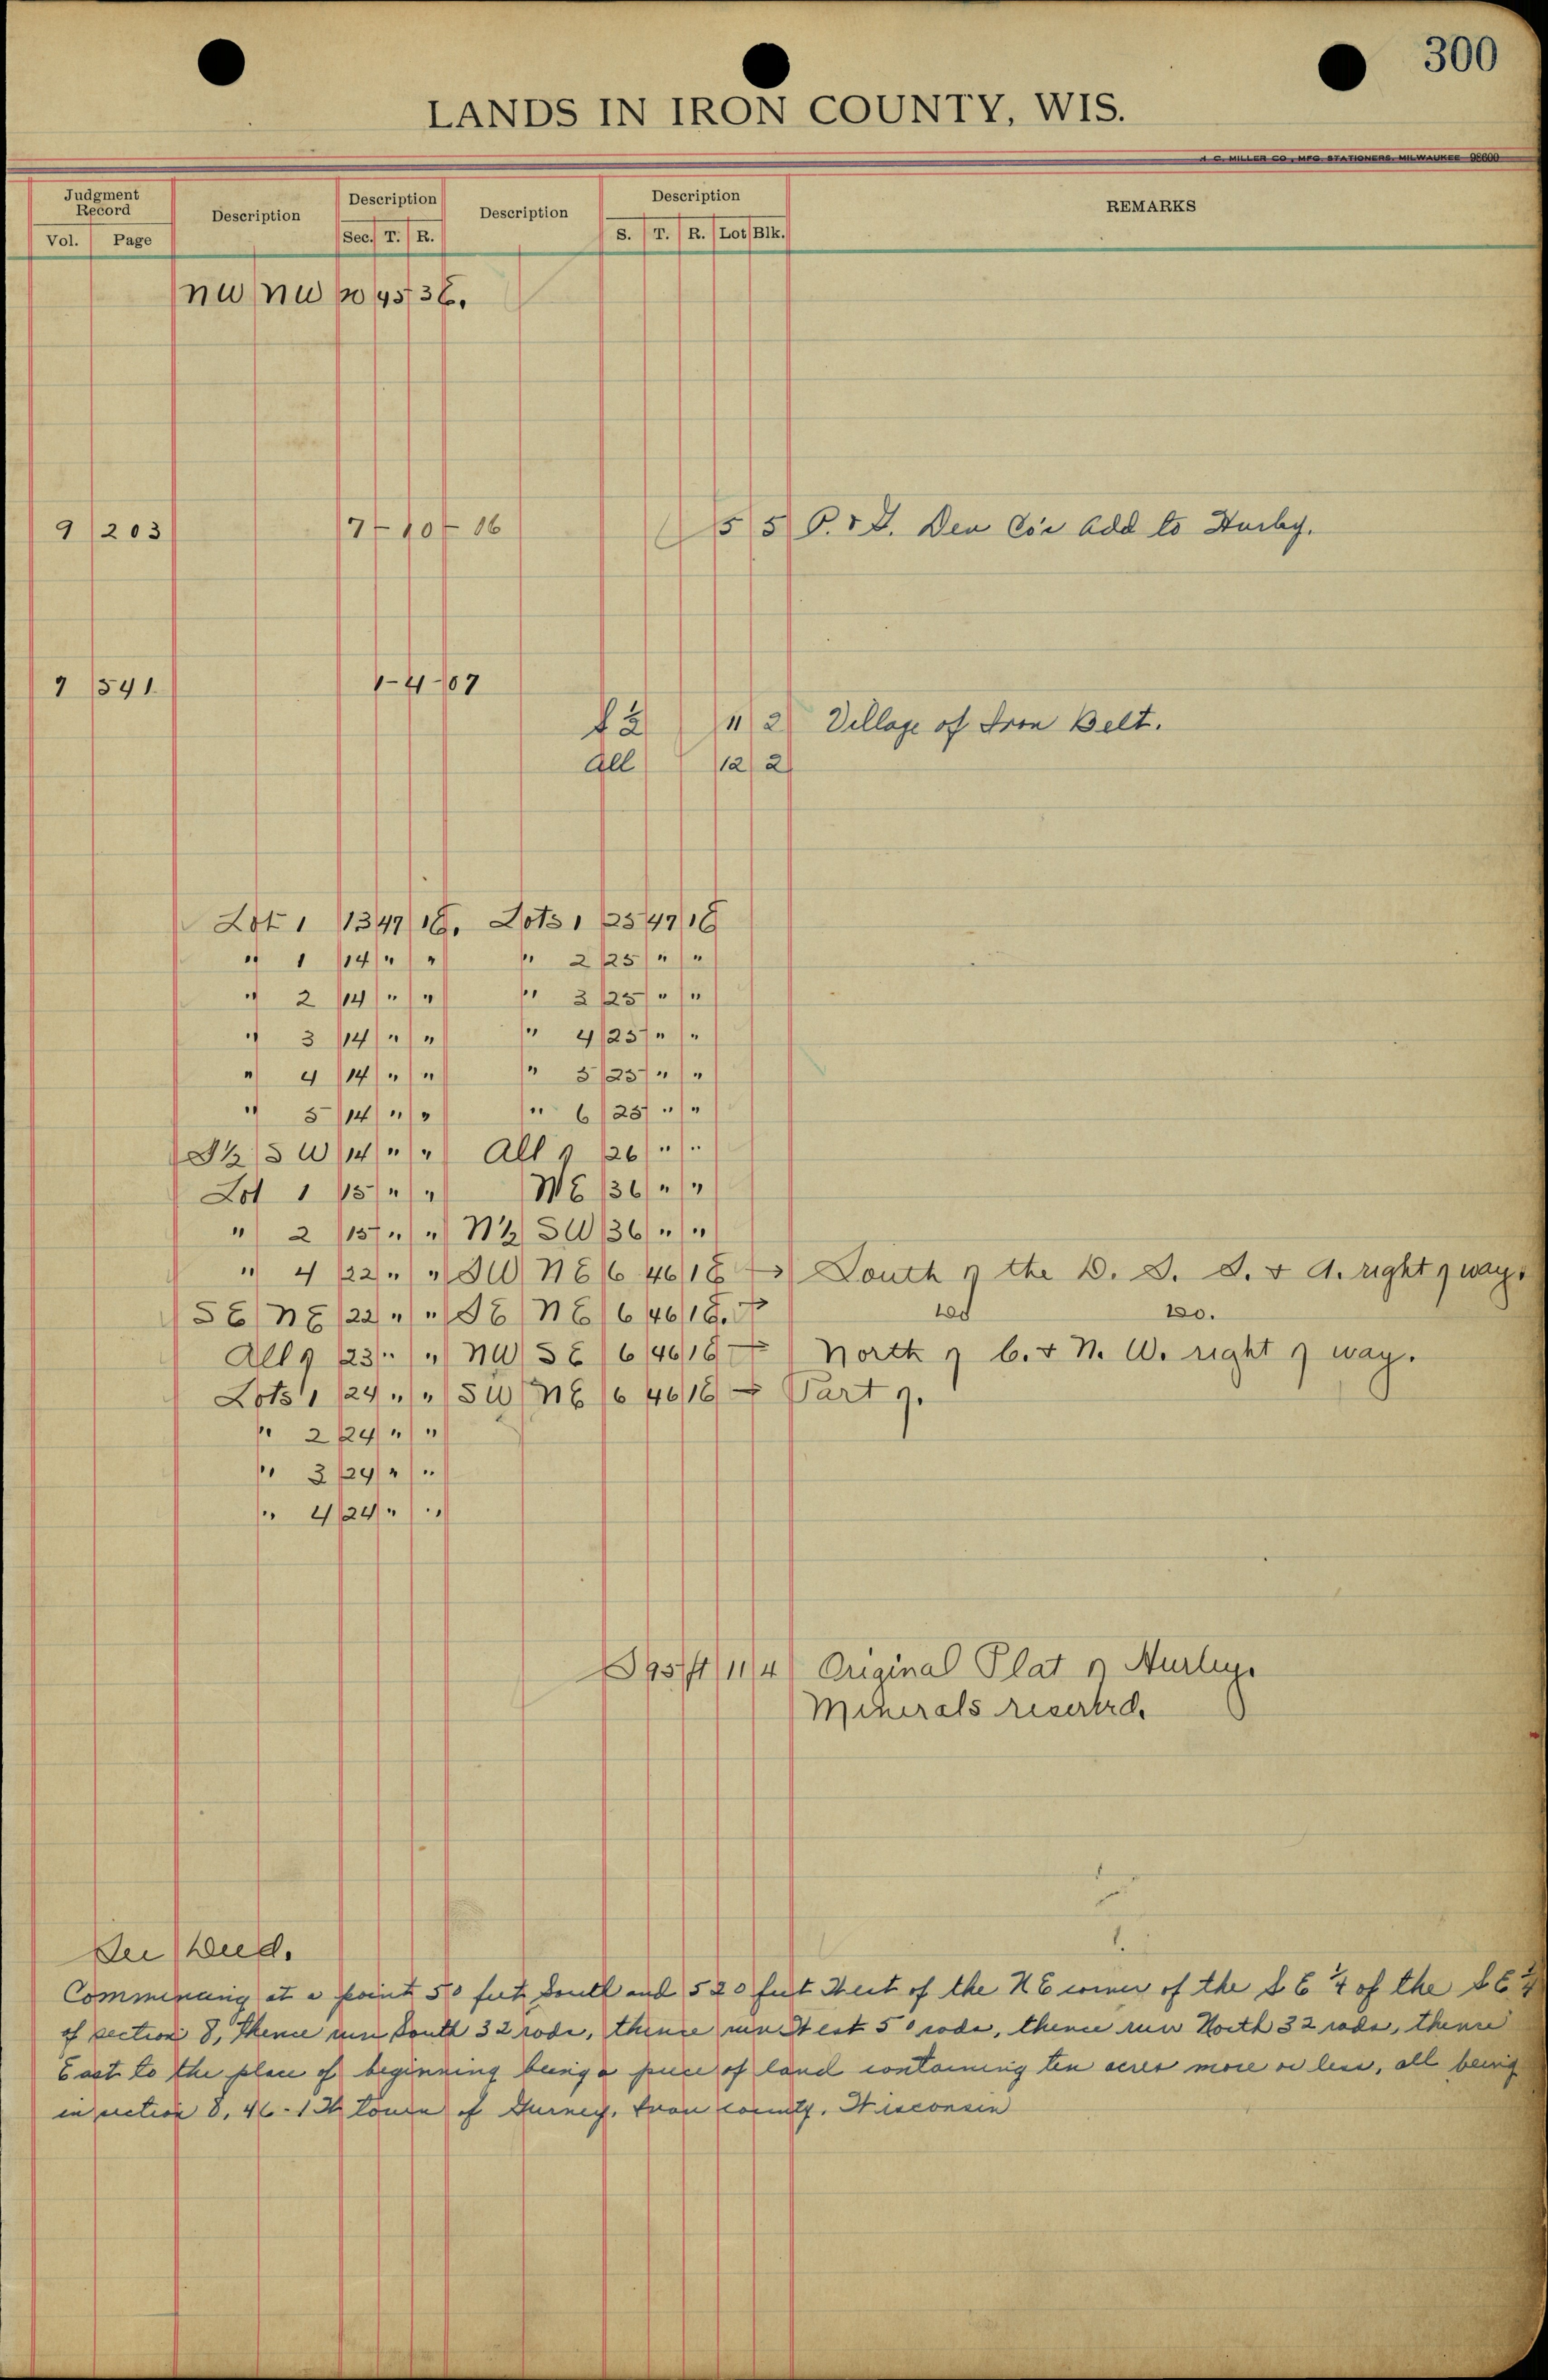 300
LANDS IN IRON COUNTY, WIS.
H. C. MILLER CO., MFG. STATIONERS, MILWAUKEE 98600
Judgment Record Description Description Description Description REMARKS
Vol. Page Sec. T. R. S. T. R. Lot Blk.
NW NW 20 45 3E.
9 203 7-10-06 5 5 P. & D. Dev Co's Add to Hurley.
9 541 1-4-07
S 1/2 11 2 Village of Iron Belt.
All 12 2
Lot 1 13 47 1E. Lots 1 25 47 1E
" 1 14 " " " 2 25 " "
" 2 14 " " " 3 25 " "
" 3 14 " " " 4 25 " "
" 4 14 " " " 5 25 " "
" 5 14 " " " 6 25 " "
S 1/2 SW 14 " " All of 26 " "
Lot 1 15 " " NE 36 " "
" 2 15 " " N 1/2 SW 36 " "
" 4 22 " " SW NE 6 46 1E South of the D. S. S. & A. right of way.
SE NE 22 " " SE NE 6 46 1E. " 100 100.
All of 23 " " NW SE 6 46 1E North of C. & N. W. right of way.
Lots 1 24 " " SW NE 6 46 1E Part of.
" 2 24 " "
" 3 24 " "
" 4 24 " "
S 95 ft 11 4 Original Plat of Hurley.
Minerals reserved.
See Deed.
Commencing at a point 50 feet South and 520 feet West of the NE corner of the SE 1/4 of the SE 1/4
of section 8, Thence run South 32 rods, thence run West 50 rods, thence run North 32 rods, thence
East to the place of beginning being a piece of land containing ten acres more or less, all being
in section 8, 46-1W town of Gurney, Iron County, Wisconsin